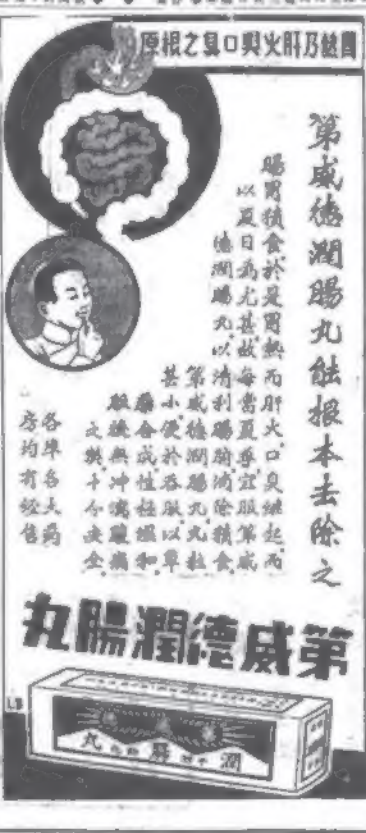 胃熱乃肝火與口臭之根原
第威德潤腸丸能根本去除之
腸胃積食於是胃熱而肝火口臭繼起而
以夏日為尤甚故每當夏季宜服第威
德潤腸丸以清利腸胃消除積食
第威德潤腸丸丸粒
甚小便於吞服以草
藥合成性極溫和
服後無冲瀉腹痛
之弊十分安全
各埠各大药
房均有經售
第威德潤腸丸
潤腸丸
LB